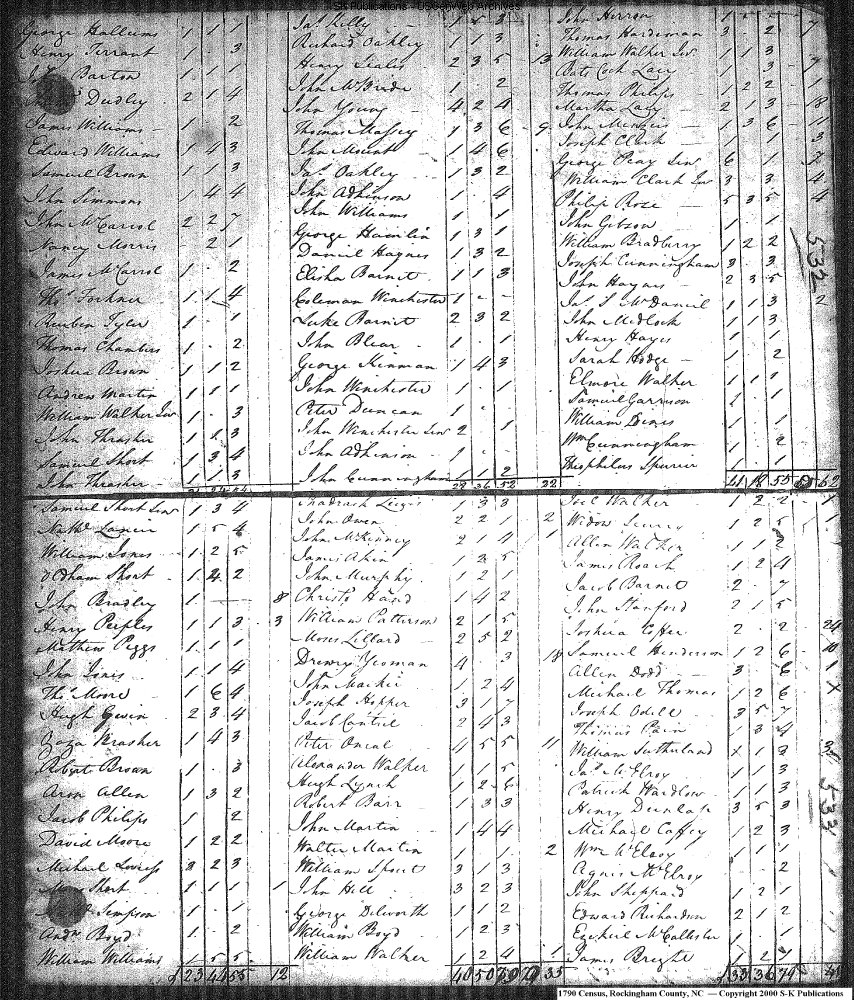 S-K Publications - USGenWeb Archives
George Hallums 1 1 1
Henry Terrant 1 . 3
Barton 1 1 1
Dudley 2 1 4
James Williams 1 . 2
Edward Williams 1 4 3
Samuel Brown 1 1 3
John Simmons 1 4 4
John McCarrol 2 2 7
Nancy Morris . 2 1
James McCarrol 1 . 2
Thos Forkner 1 1 4
Reuben Tyler 1 . 1
Thomas Chambers 1 . 2
Joshua Brown 1 1 2
Andrew Martin 1 1 1
William Walker Snr 1 . 3
John Thrasher
Samuel Short 1 3 4
John Thrasher 1 1 3
Jas Kelly 1 5 3
Richard Oakley 1 1 3
Henry Scales 2 3 5 . 13
John McBride 1 . 2
John Young 4 2 4
Thomas Massey 1 3 6 . 9
John Mount 1 4 6
Jas Oakley 1 3 2
John Adkinson 1 . 4
John Williams 1 . 1
George Hamlin 1 3 1
Daniel Haynes 1 3 2
Elisha Barnet 1 1 3
Coleman Winchester 1 - -
Luke Barnet 2 3 2
John Blear 1 . 1
George Kinman 1 4 3
John Winchester 1 . 1
Peter Duncan 1 .
John Winchester Snr 2 . 1
John Adkinson 1 .
John Cunningham 1 . 2
28 36 52 . 22
John Herron 1
Thomas Hardeman 3 . 2
William Walker Jnr 1 . 1
Bats Cock Lacy 1 . 3
Thomas Philips 1 2 2
Martha Lacy 2 1 3 . 8
John Menzies 1 3 6 . 11
Joseph Clark 1 . 1 . 3
George Peay Snr 6 . 1
William Clark Jnr 3 . 3 . 4
Philip Roze 5 3 5 . 4
John Gibson 1 . 1
William Bradberry 1 2 2
Joseph Cunningham 3 . 3
John Hayns 2 3 5
Jas S McDaniel 1 1 3 . 2
John Medlock 1 1 3
Henry Hayes 1 . 1
Sarah Hodge 1 . 2
Elmore Walker 1 1 1
Samuel Garrison 1 . 1
William Denis 1 . 1
Wm Cunningham 1 . 2
Theophilus Spurier 1 . 1
41 18 55 62
532
Samuel Short Snr 1 3 4
Nathl Lanier 1 5 4
William Jones 1 2 5
Odham Short 1 4 2
John Bradley 1 8
Henry Peeples 1 1 3 . 3
Mathew Peggs 1 1 1
John Jones 1 1 4
Thos Moore 1 6 4
Hugh Gwin 2 3 4
Goza Krasher 1 4 3
Roberts Brown 1 . 3
Aron Allen 1 3 2
Jacob Philips 1 . 2
David Moore 1 2 2
Michael Loviss 3 2 3
Short 1 1 1 . 1
Simpson 1 . 1
Andw Boyd 1 . 2
William Williams 1 5 5
23 44 55 . 12
Shadrach Liegis 1 3 3
John Owen 2 2 1 . 2
John McKinney 2 1 4 . 1
James Akin 1 3 5
John Murphy 1 2 1
Christo Hand 1 4 2
William Patterson 2 1 5
Moses Lillard 2 5 2
Drewry Yeoman 4 . 3 . 18
John Mackie 1 2 4
Joseph Hopper 3 1 7
Jacob Cantril 2 4 3
Peter Oneal 4 5 5 . 11
Alexander Walker 1 . 5
Hugh Lynch 1 2 6
Robert Barr 1 3 3
John Martin 1 4 4
Walter Martin 1 . 1 . 2
William Spout 3 1 3
John Hill 3 2 3
George Dilworth 1 1 2
William Boyd 1 2 3
William Walker 1 2 4 . 1
40 50 79 35
Joel Walker 1 2 2 . 1
Widow Scurry 1 2 5 . 1
Allen Walker 1 1
James Roach 1 2 4
Jacob Barnet 2 . 7
John Stanford 2 1 5
Joshua Coffee 2 . 2 . 24
Samuel Henderson 1 2 6 . 10
Allen Dodd 3 . 6 . 1
Michael Thomas 1 2 6
Joseph Odill 3 5 7
Thomas Pain 1 3 4
William Sutherland x 1 3 . 3
Jas McElroy 1 1 3
Patrick Hardlow 1 1 3
Henry Dunlap 3 5 3
Michael Caffey 1 2 3
Wm McElroy 1 1 1
Agnis McElroy . . 2
John Sheppard 1 2 1
Edward Richardson 2 1 2
Ezekiel McCallester 1 . 1
James Bright 1 2
33 36 79
533
1790 Census, Rockingham County, NC — Copyright 2000 S-K Publications